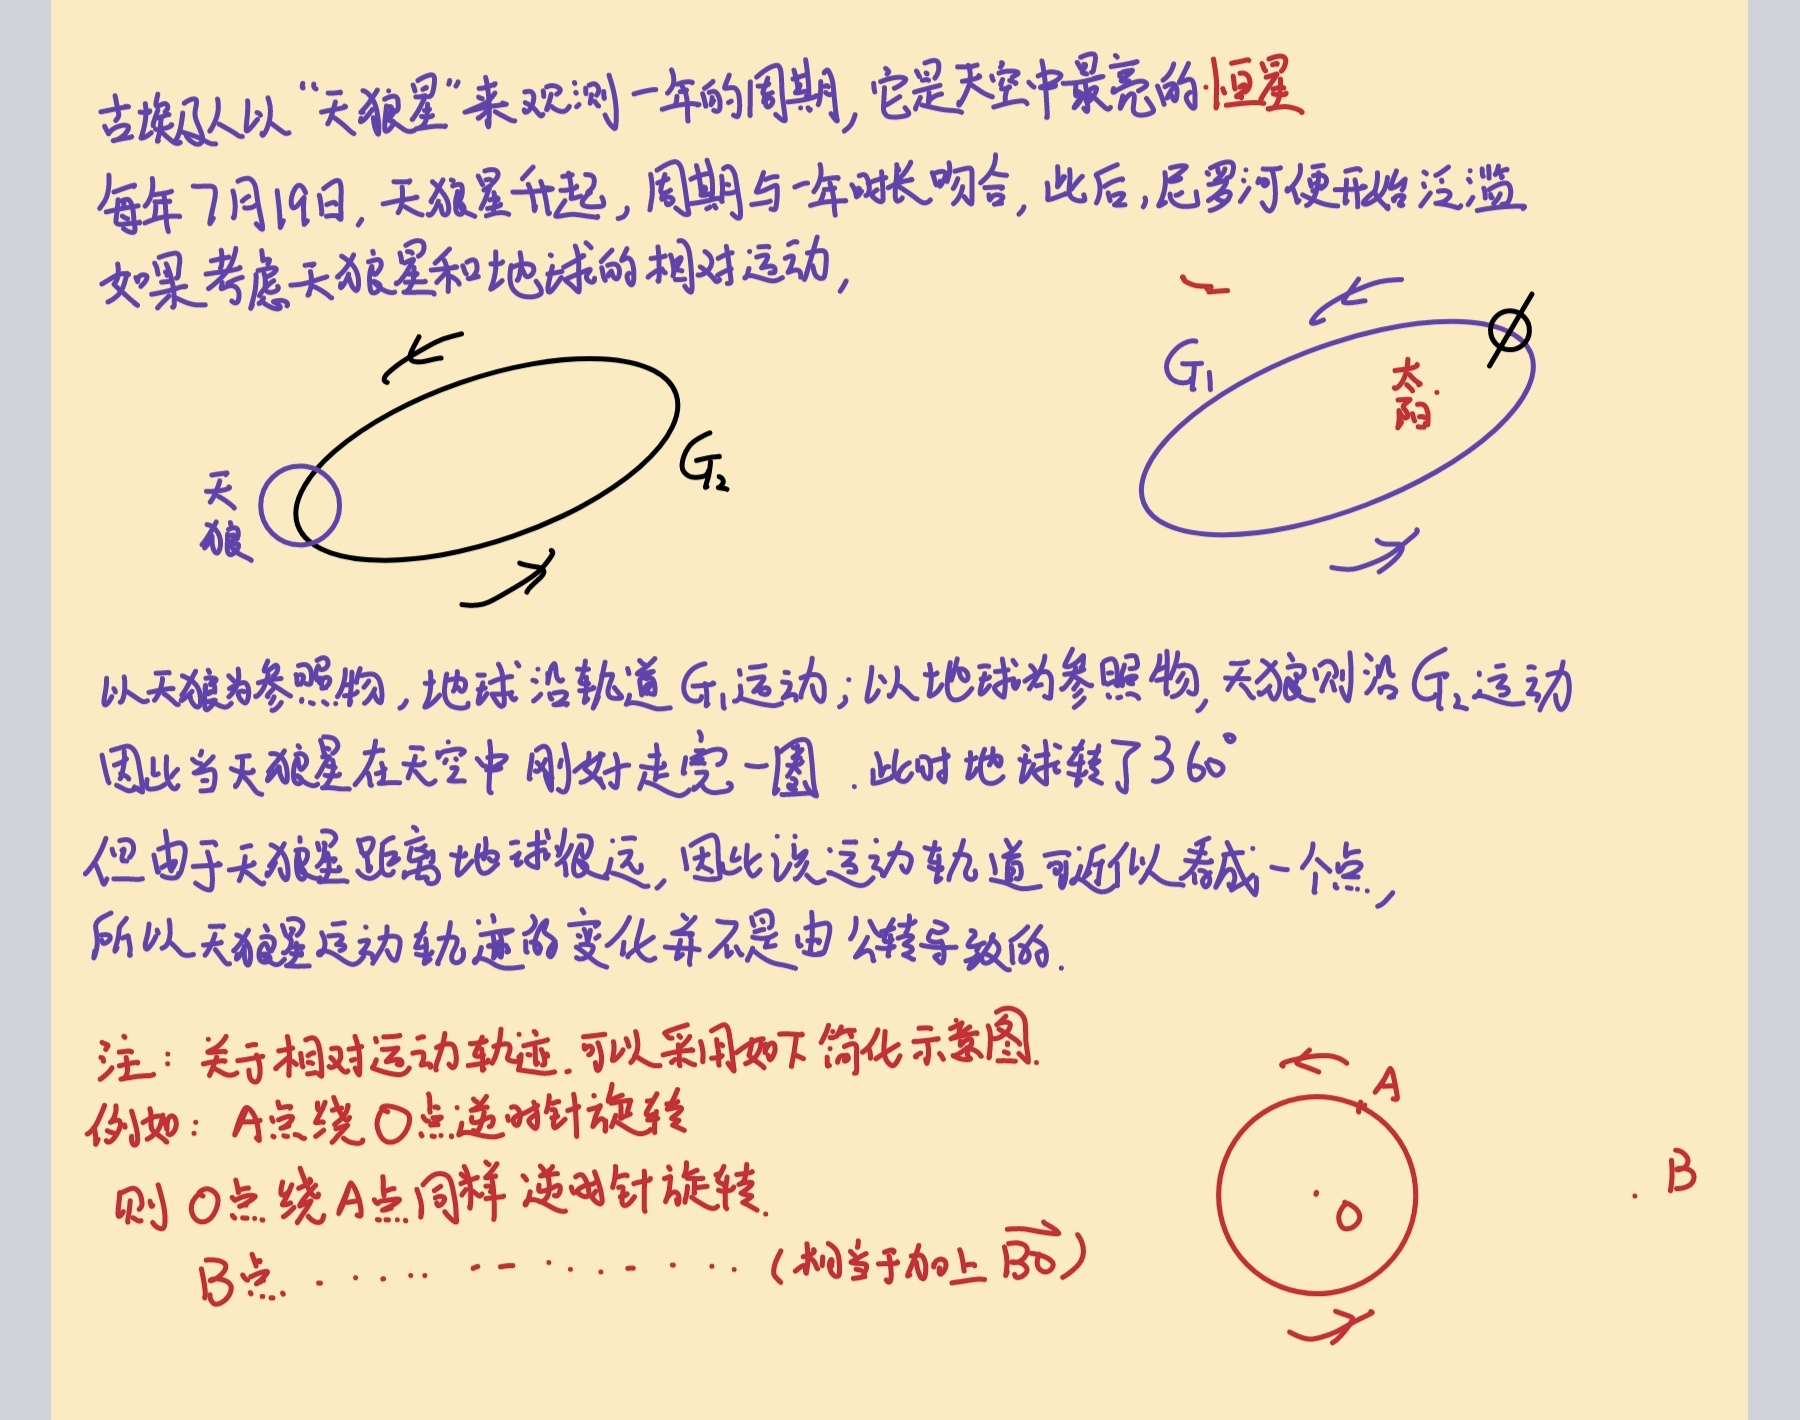 古埃及人以“天狼星”来观测一年的周期,它是天空中最亮的恒星
每年7月19日,天狼星升起,周期与一年时长吻合,此后,尼罗河便开始泛滥
如果考虑天狼星和地球的相对运动,
G1
太阳
G2
天狼
以天狼为参照物,地球沿轨道G1运动;以地球为参照物,天狼则沿G2运动
因此当天狼星在天空中刚好走完一圈.此时地球转了360°
但由于天狼星距离地球很远,因此该运动轨道可近似看成一个点,
所以天狼星运动轨迹的变化并不是由公转导致的.
注:关于相对运动轨迹.可以采用如下简化示意图.
例如:A点绕O点逆时针旋转
则O点绕A点同样逆时针旋转.
B点..............(相当于加上BO)
A
B
O